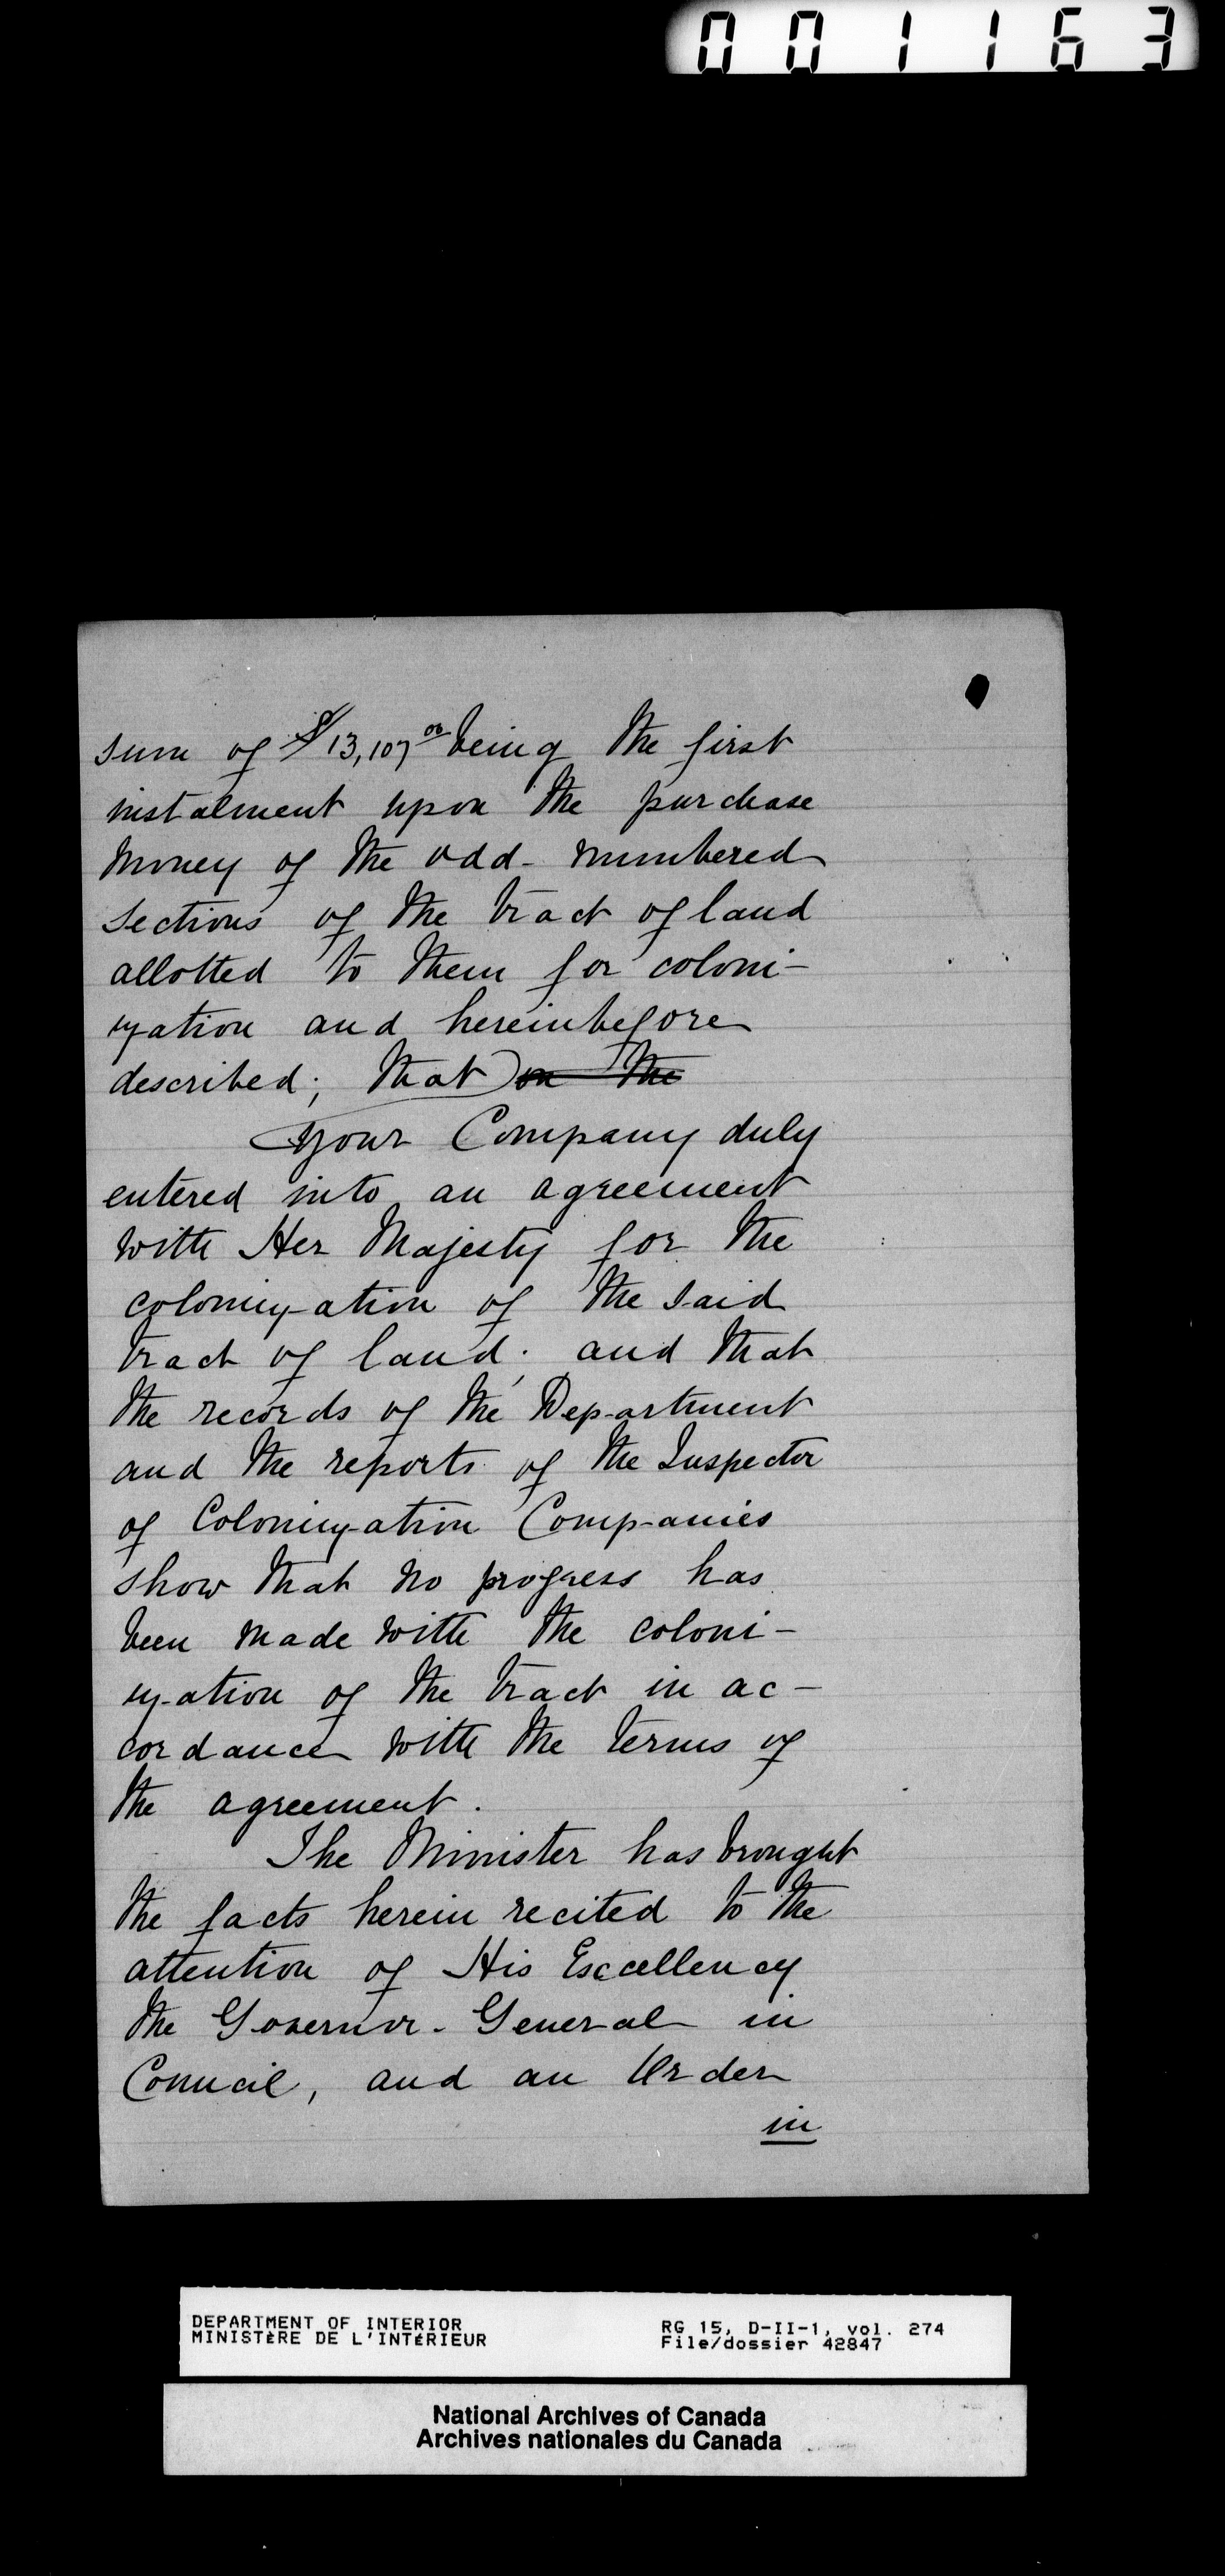 001163
sum of $13,107.00 being the first
instalment upon the purchase
money of the odd-numbered
sections of the tract of land
allotted to them for coloni-
zation and hereinbefore
described; that on the
your Company duly
entered into an agreement
with Her Majesty for the
colonization of the said
tract of land; and that
the records of the Department
and the reports of the Inspector
of Colonization Companies
show that no progress has
been made with the coloni-
zation of the tract in ac-
cordance with the terms of
the agreement.
The Minister has brought
the facts herein recited to the
attention of His Excellency
the Governor-General in
Council, and an Order
in
DEPARTMENT OF INTERIOR
MINISTÈRE DE L'INTÉRIEUR
RG 15, D-II-1, vol. 274
File/dossier 42847
National Archives of Canada
Archives nationales du Canada